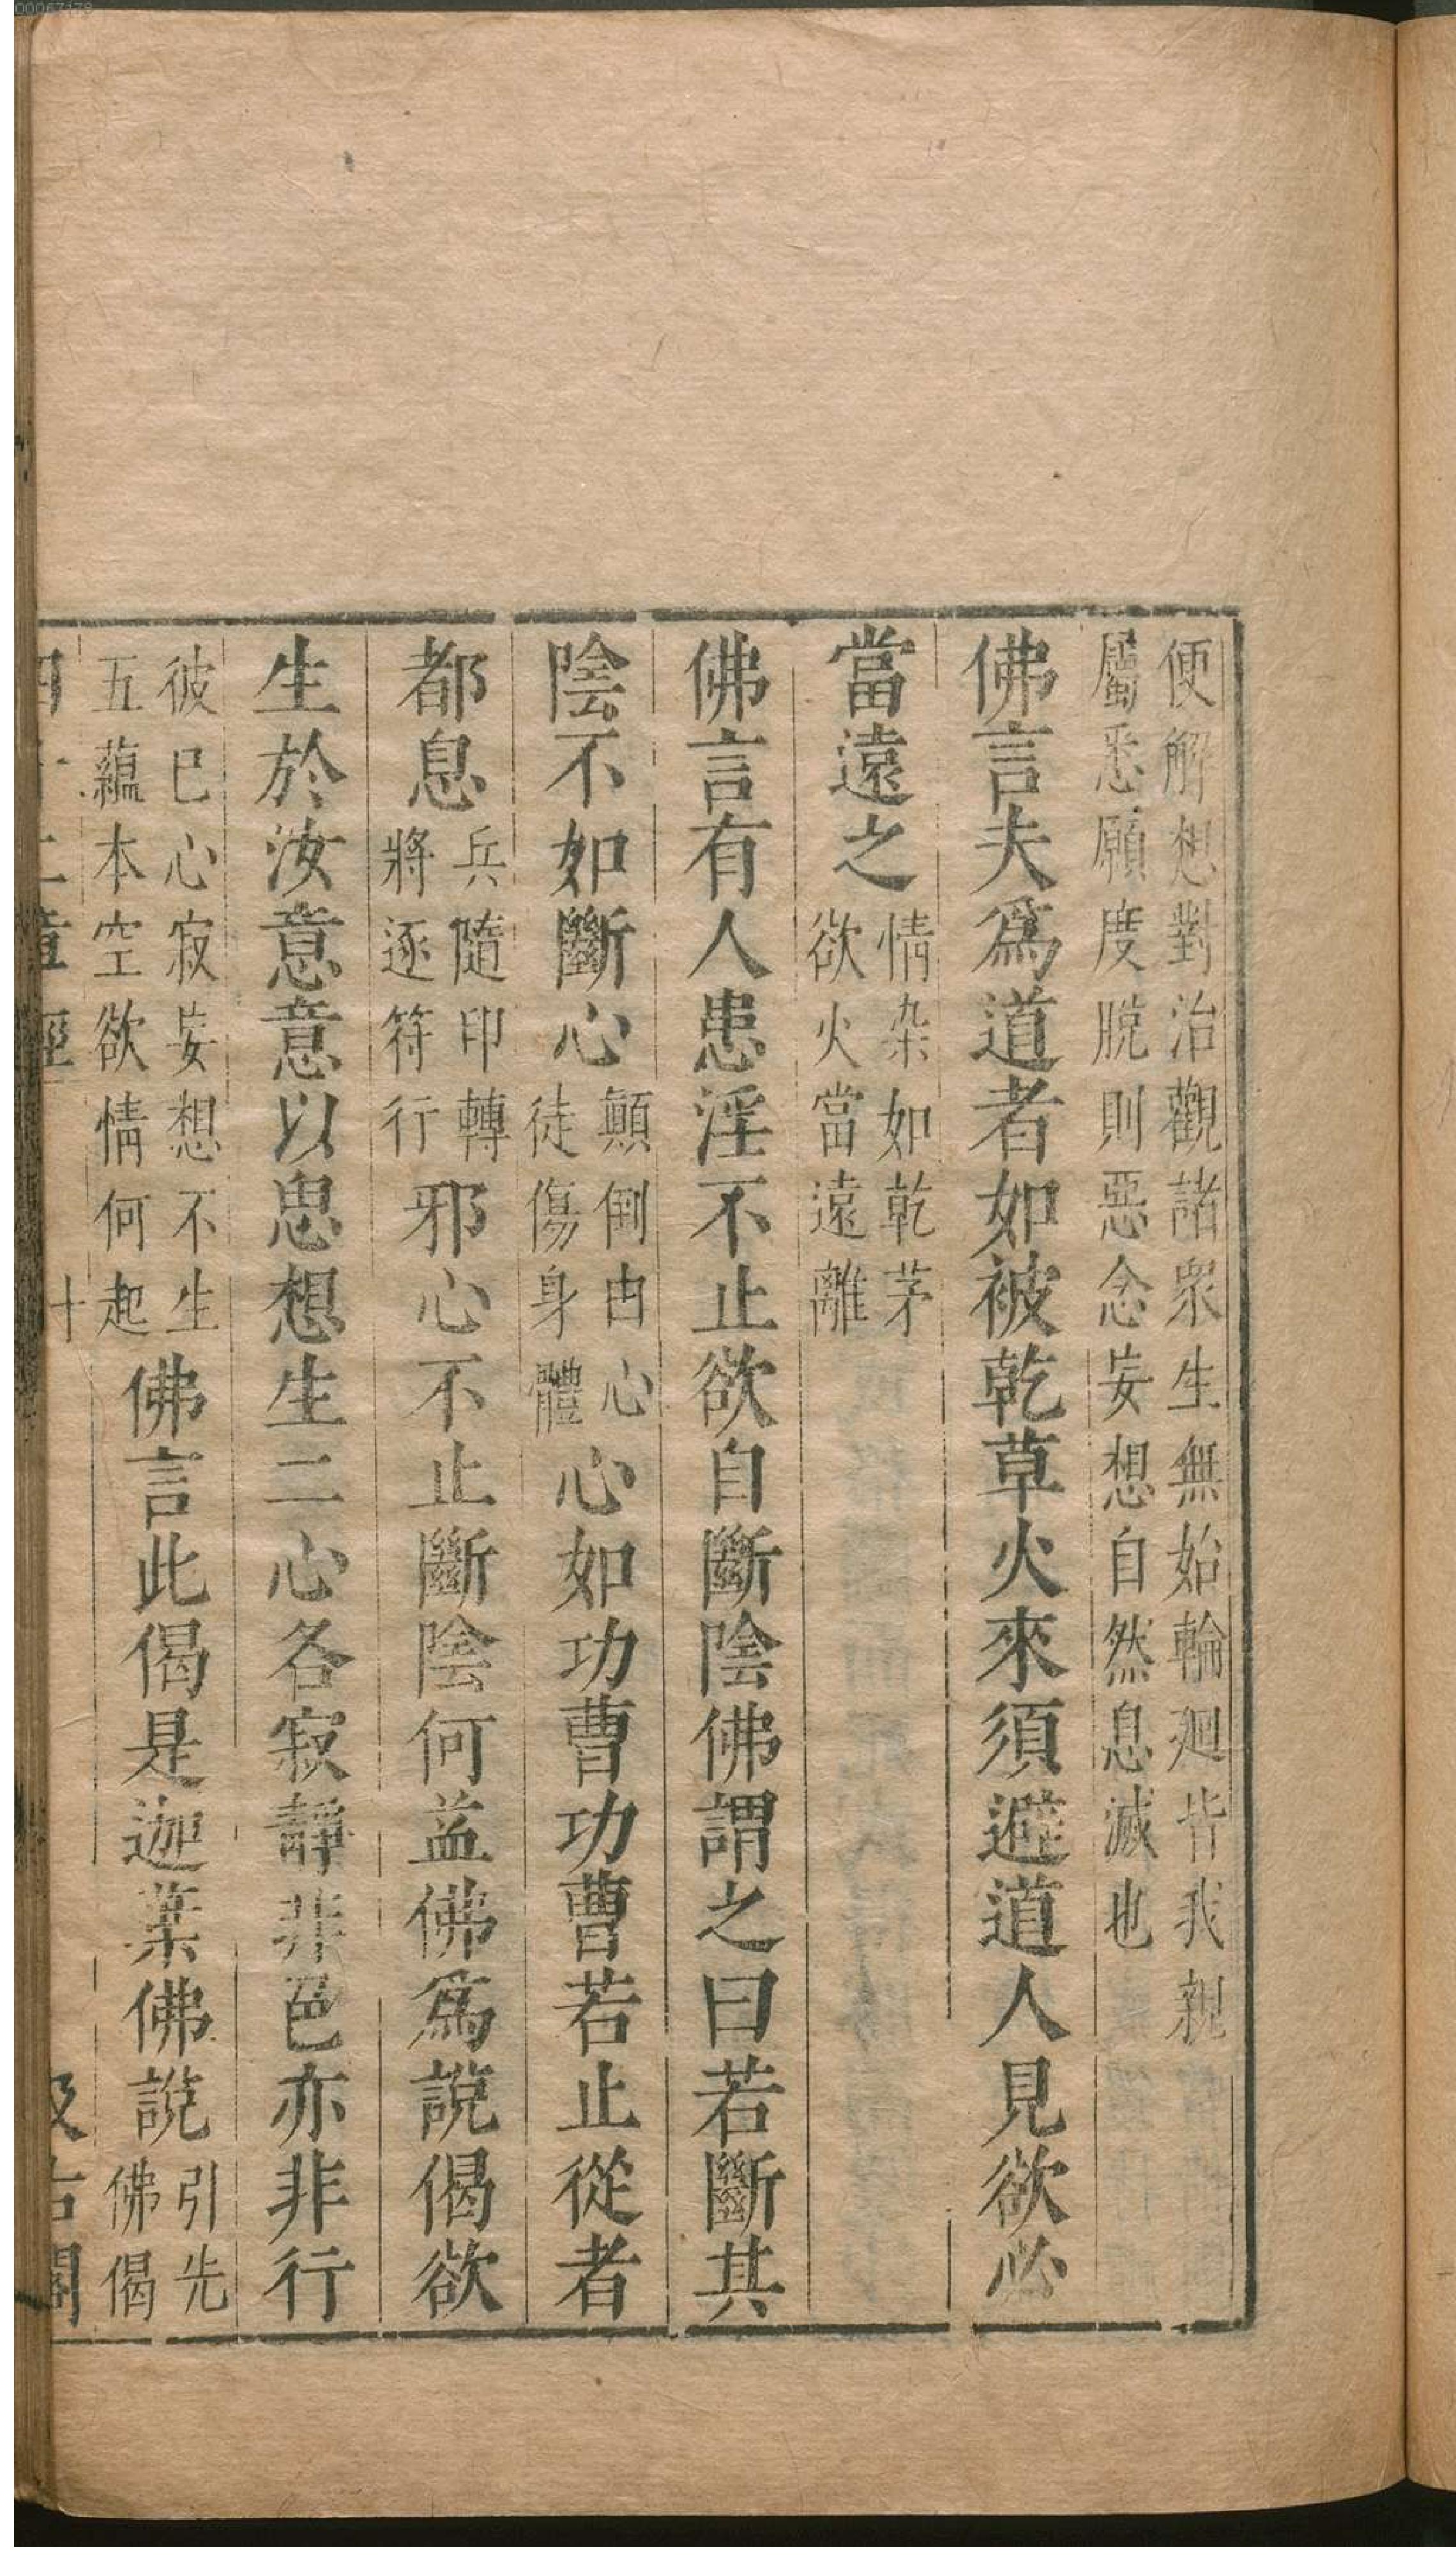 便解想對治觀諸衆生無始輪廻皆我親
屬悉願度脫則惡念妄想自然息滅也
佛言夫爲道者如被乾草火來須避道人見欲必
當遠之情染如乾茅欲火當遠離
佛言有人患淫不止欲自斷陰佛謂之曰若斷其
陰不如斷心顛倒由心徒傷身體心如功曹功曹若止從者
都息兵隨印轉將逐符行邪心不止斷陰何益佛爲說偈欲
生於汝意意以思想生二心各寂靜非色亦非行
彼巳心寂妄想不生五蘊本空欲情何起佛言此偈是迦葉佛說引先佛偈
四十二章經 十 汲古閣
00067178